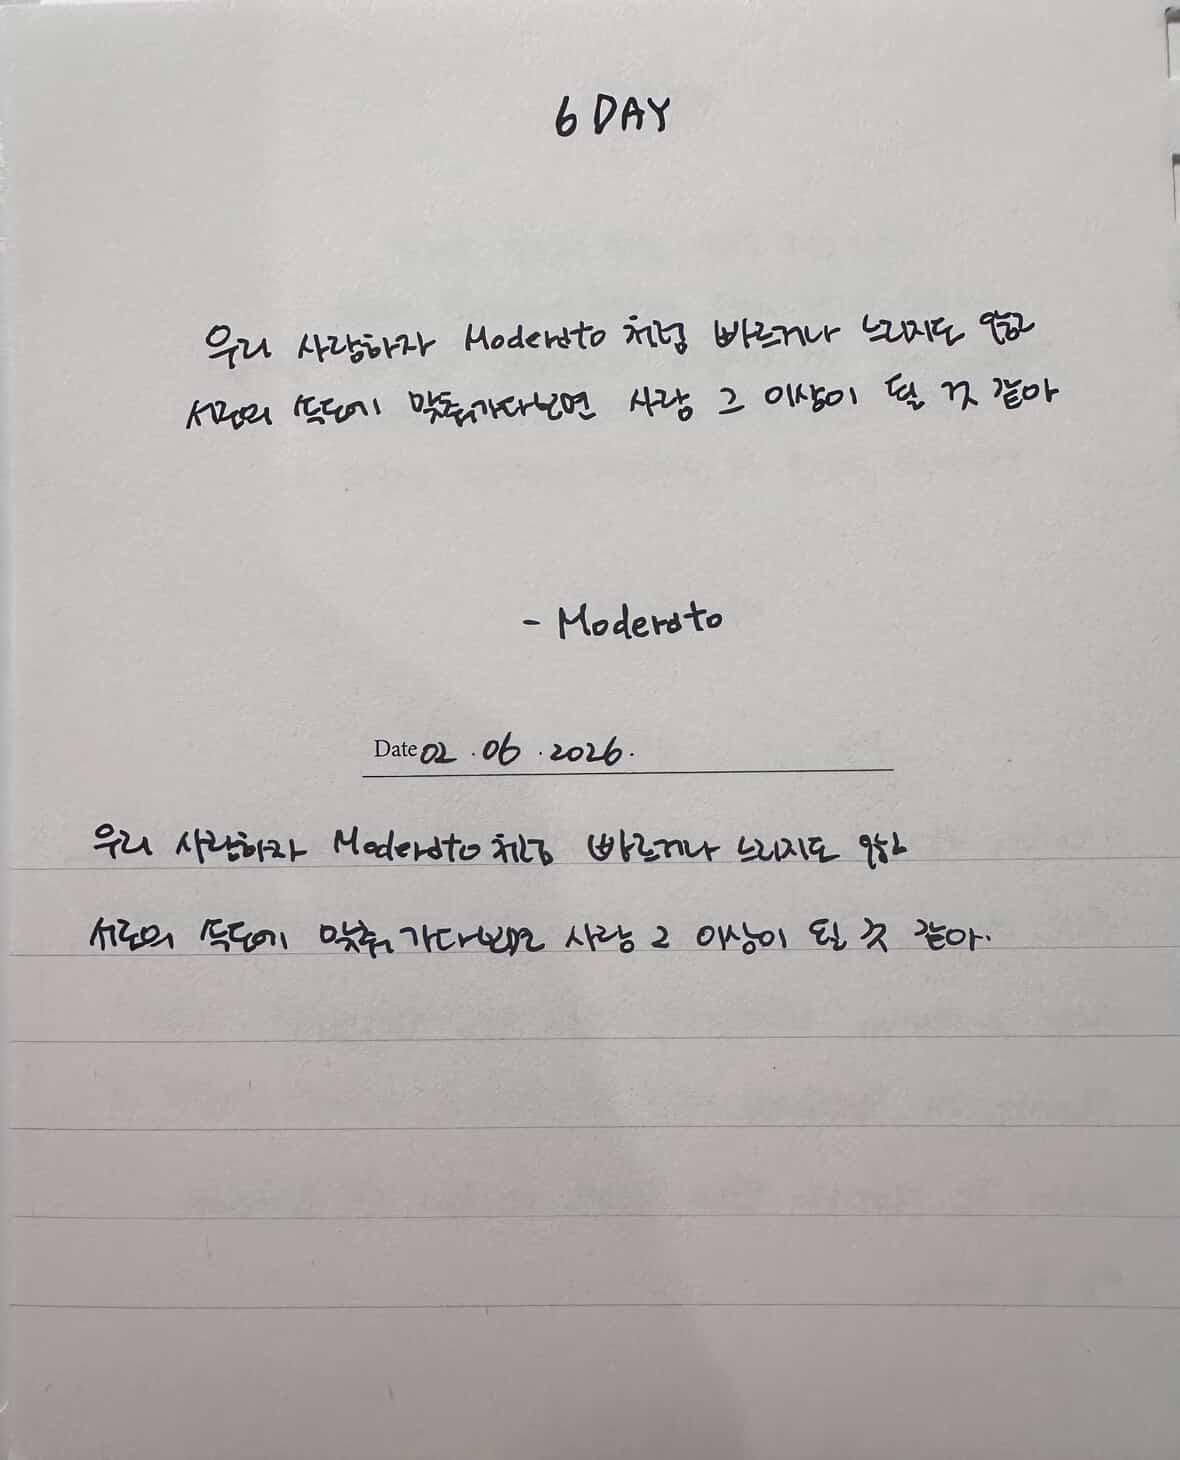 6 DAY
우리 사랑하자 Moderato 처럼 빠르거나 느리지도 않고
서로의 속도에 맞춰가다보면 사랑 그 이상이 될 것 같아
- Moderato
Date 02 . 06 . 2026.
우리 사랑하자 Moderato 처럼 빠르거나 느리지도 않고
서로의 속도에 맞춰 가다보면 사랑 그 이상이 될 것 같아.